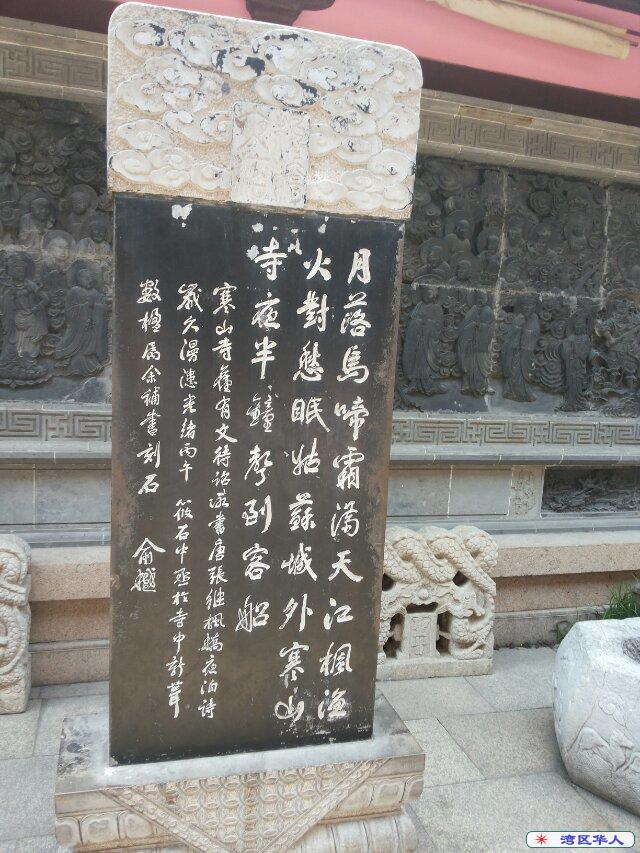 月落烏啼霜滿天江楓漁
火對愁眠姑蘇城外寒山
寺夜半鐘聲到客船
寒山寺舊有文待詔所書唐張繼楓橋夜泊詩
歲久漫漶光緒丙午筱石中丞於寺中新葺
數楹属余補書刻石
俞樾
湾区华人